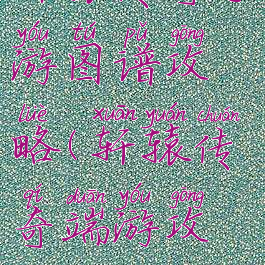 yóu tú pǔ gōng
游图谱攻
lüè xuān yuán chuán
略(轩辕传
qí duān yóu gōng
奇端游攻